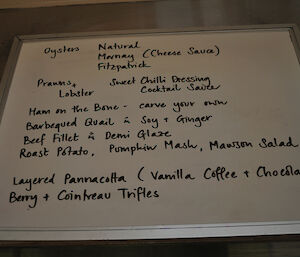 Oysters Natural
Mornay (Cheese Sauce)
Fitzpatrick
Prawns + Sweet Chilli Dressing
Lobster Cocktail Sauce
Ham on the Bone - carve your own
Barbequed Quail c Soy + Ginger
Beef Fillet c Demi Glaze
Roast Potato, Pumpkin Mash, Mawson Salad
Layered Pannacotta (Vanilla Coffee + Chocola
Berry + Cointreau Trifles